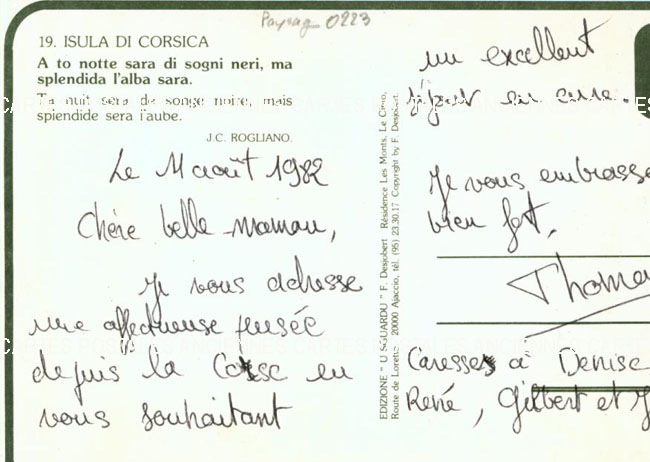 Paysag 0223
19. ISULA DI CORSICA
A to notte sara di sogni neri, ma
splendida l'alba sara.
Ta nuit sera de songe noire, mais
splendide sera l'aube.
J.C. ROGLIANO.
Le 11 août 1982
Chère belle-maman,
Je vous adresse
une affectueuse pensée
depuis la Corse en
vous souhaitant
EDIZIONE "U SGUARDU" F. Desjobert Résidence Les Monts. Le Cigno,
Route de Loreto 20000 Ajaccio, tél. (95) 23.30.17 Copyright by F. Desjobert.
un excellent
séjour en cure.
Je vous embrasse
bien fort,
Thoma
Caresses à Denise
René, Gilbert et J
CARTES POSTALES ANCIENNES CARTES POSTALES